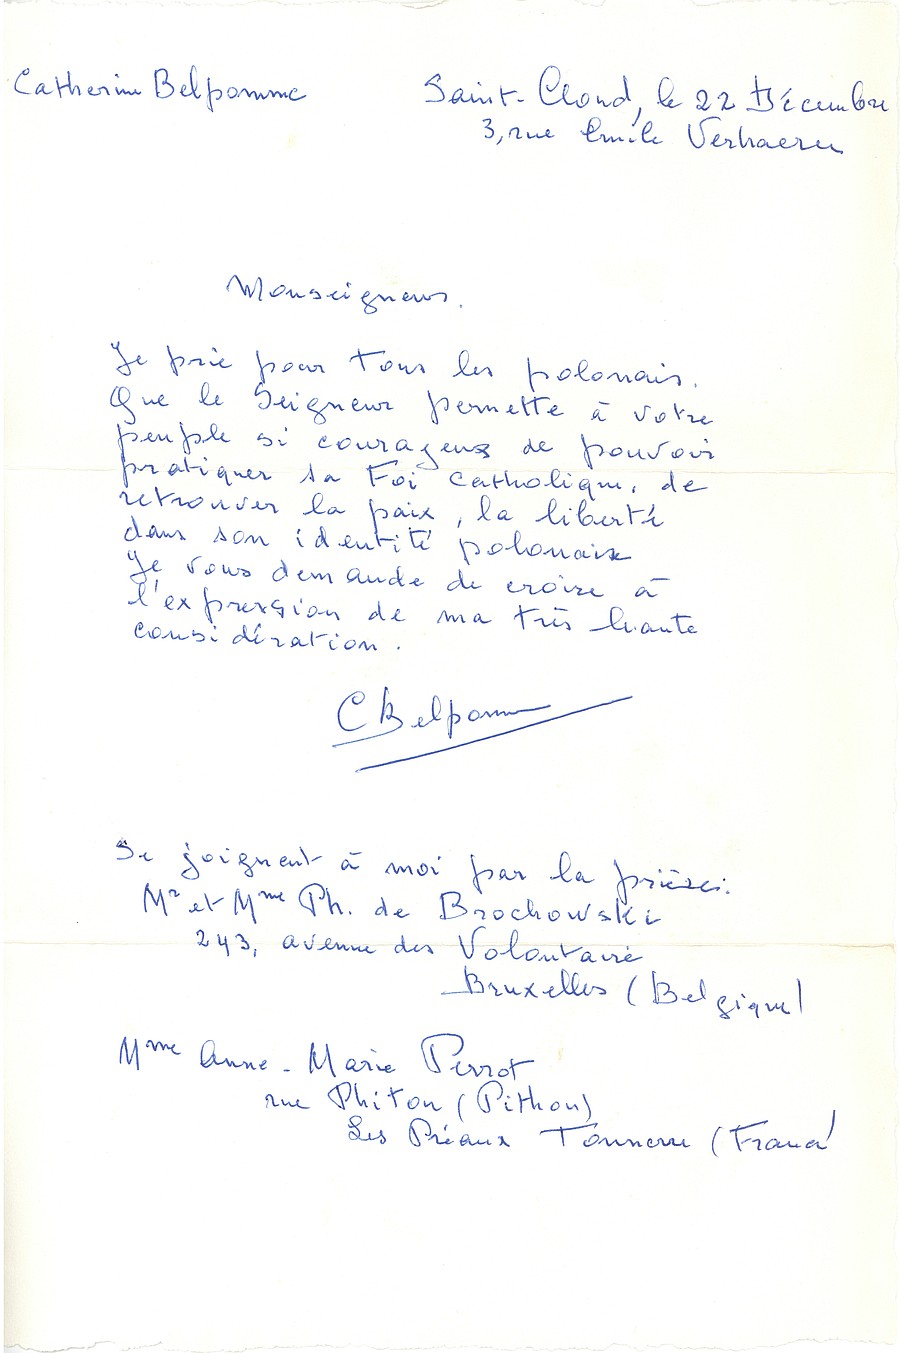 Catherine Belpomme
Saint-Cloud, le 22 Décembre
3, rue Emile Verhaeren
Monseigneur.
Je prie pour tous les polonais.
Que le Seigneur permette à votre
peuple si courageux de pouvoir
pratiquer sa Foi Catholique, de
retrouver la paix, la liberté
dans son identité polonaise
Je vous demande de croire à
l'expression de ma très haute
considération.
C Belpomme
Se joignent à moi par la prière :
Mr et Mme Ph. de Brochowski
243, avenue des Volontaire
Bruxelles (Belgique)
Mme Anne-Marie Perrot
rue Phiton (Pithon)
Les Préaux Tonnerre (France)